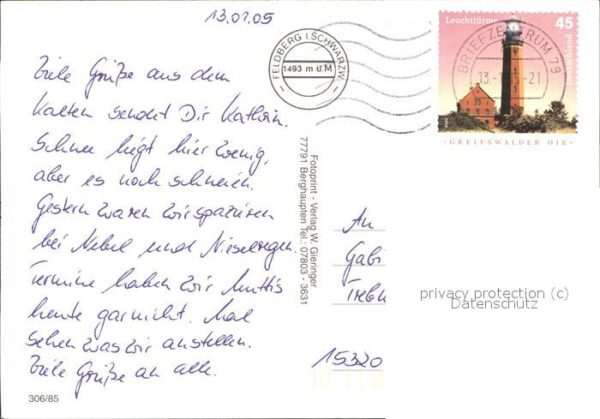 13.01.05
Viele Grüße aus dem
Kalten sendet Dir Kathrin.
Schnee liegt hier wenig,
aber es noch schneien.
Gestern waren wir spazieren
bei Nebel und Nieselregen.
Termine haben wir Muttis
heute garnicht. Mal
sehen was wir anstellen.
Viele Grüße an alle.
306/85
FELDBERG I. SCHWARZW.
1493 m ü M
Leuchttürme
45
Deutschland
BRIEFZENTRUM 79
13. -21
GREIFSWALDER OIE
Fotoprint - Verlag W. Gieringer
77791 Berghaupten Tel.: 07803 - 3631
An
Gabi
privacy protection (c)
Datenschutz
15320